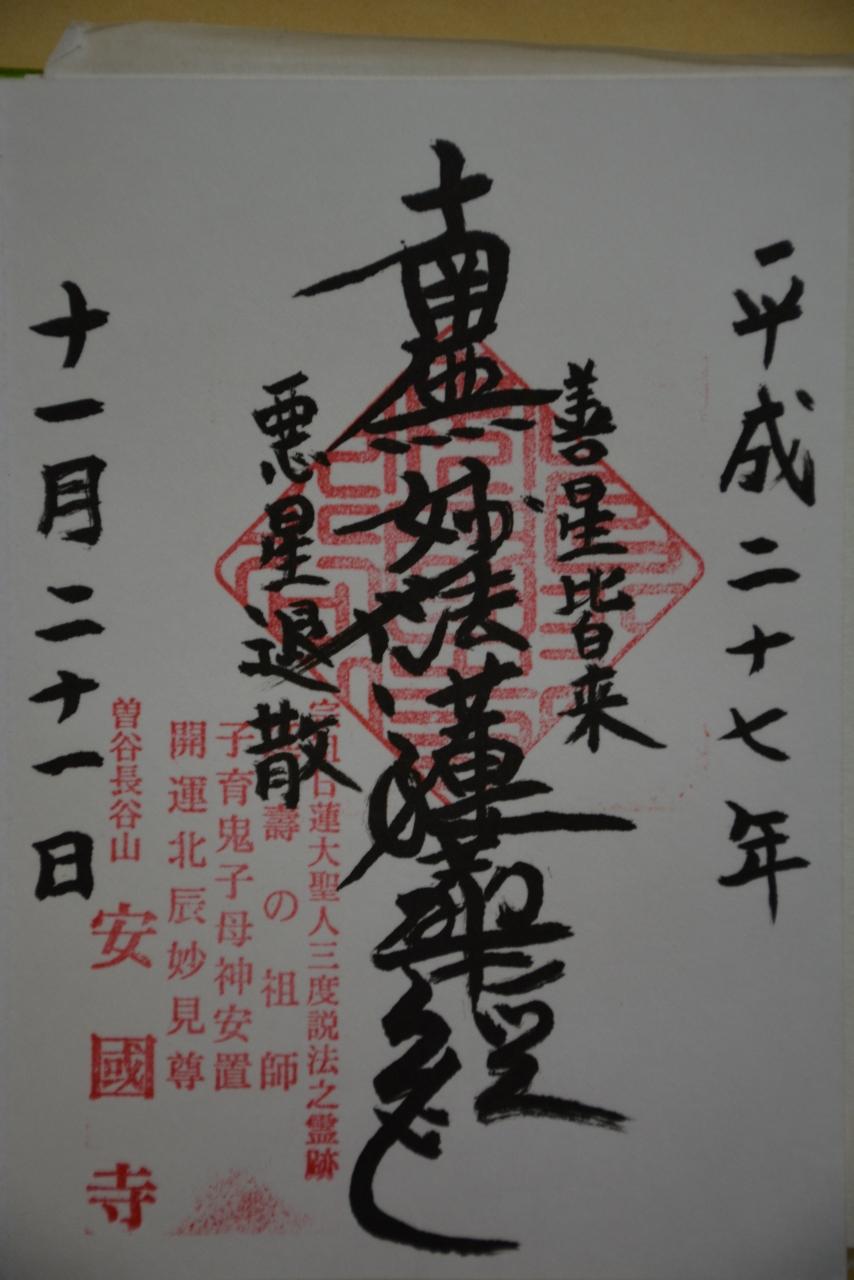 平成二十七年
善星皆来
南無妙法蓮華経
悪星退散
日蓮大聖人三度説法之霊跡
壽の祖師
子育鬼子母神安置
開運北辰妙見尊
曽谷長谷山
安國寺
十一月二十一日